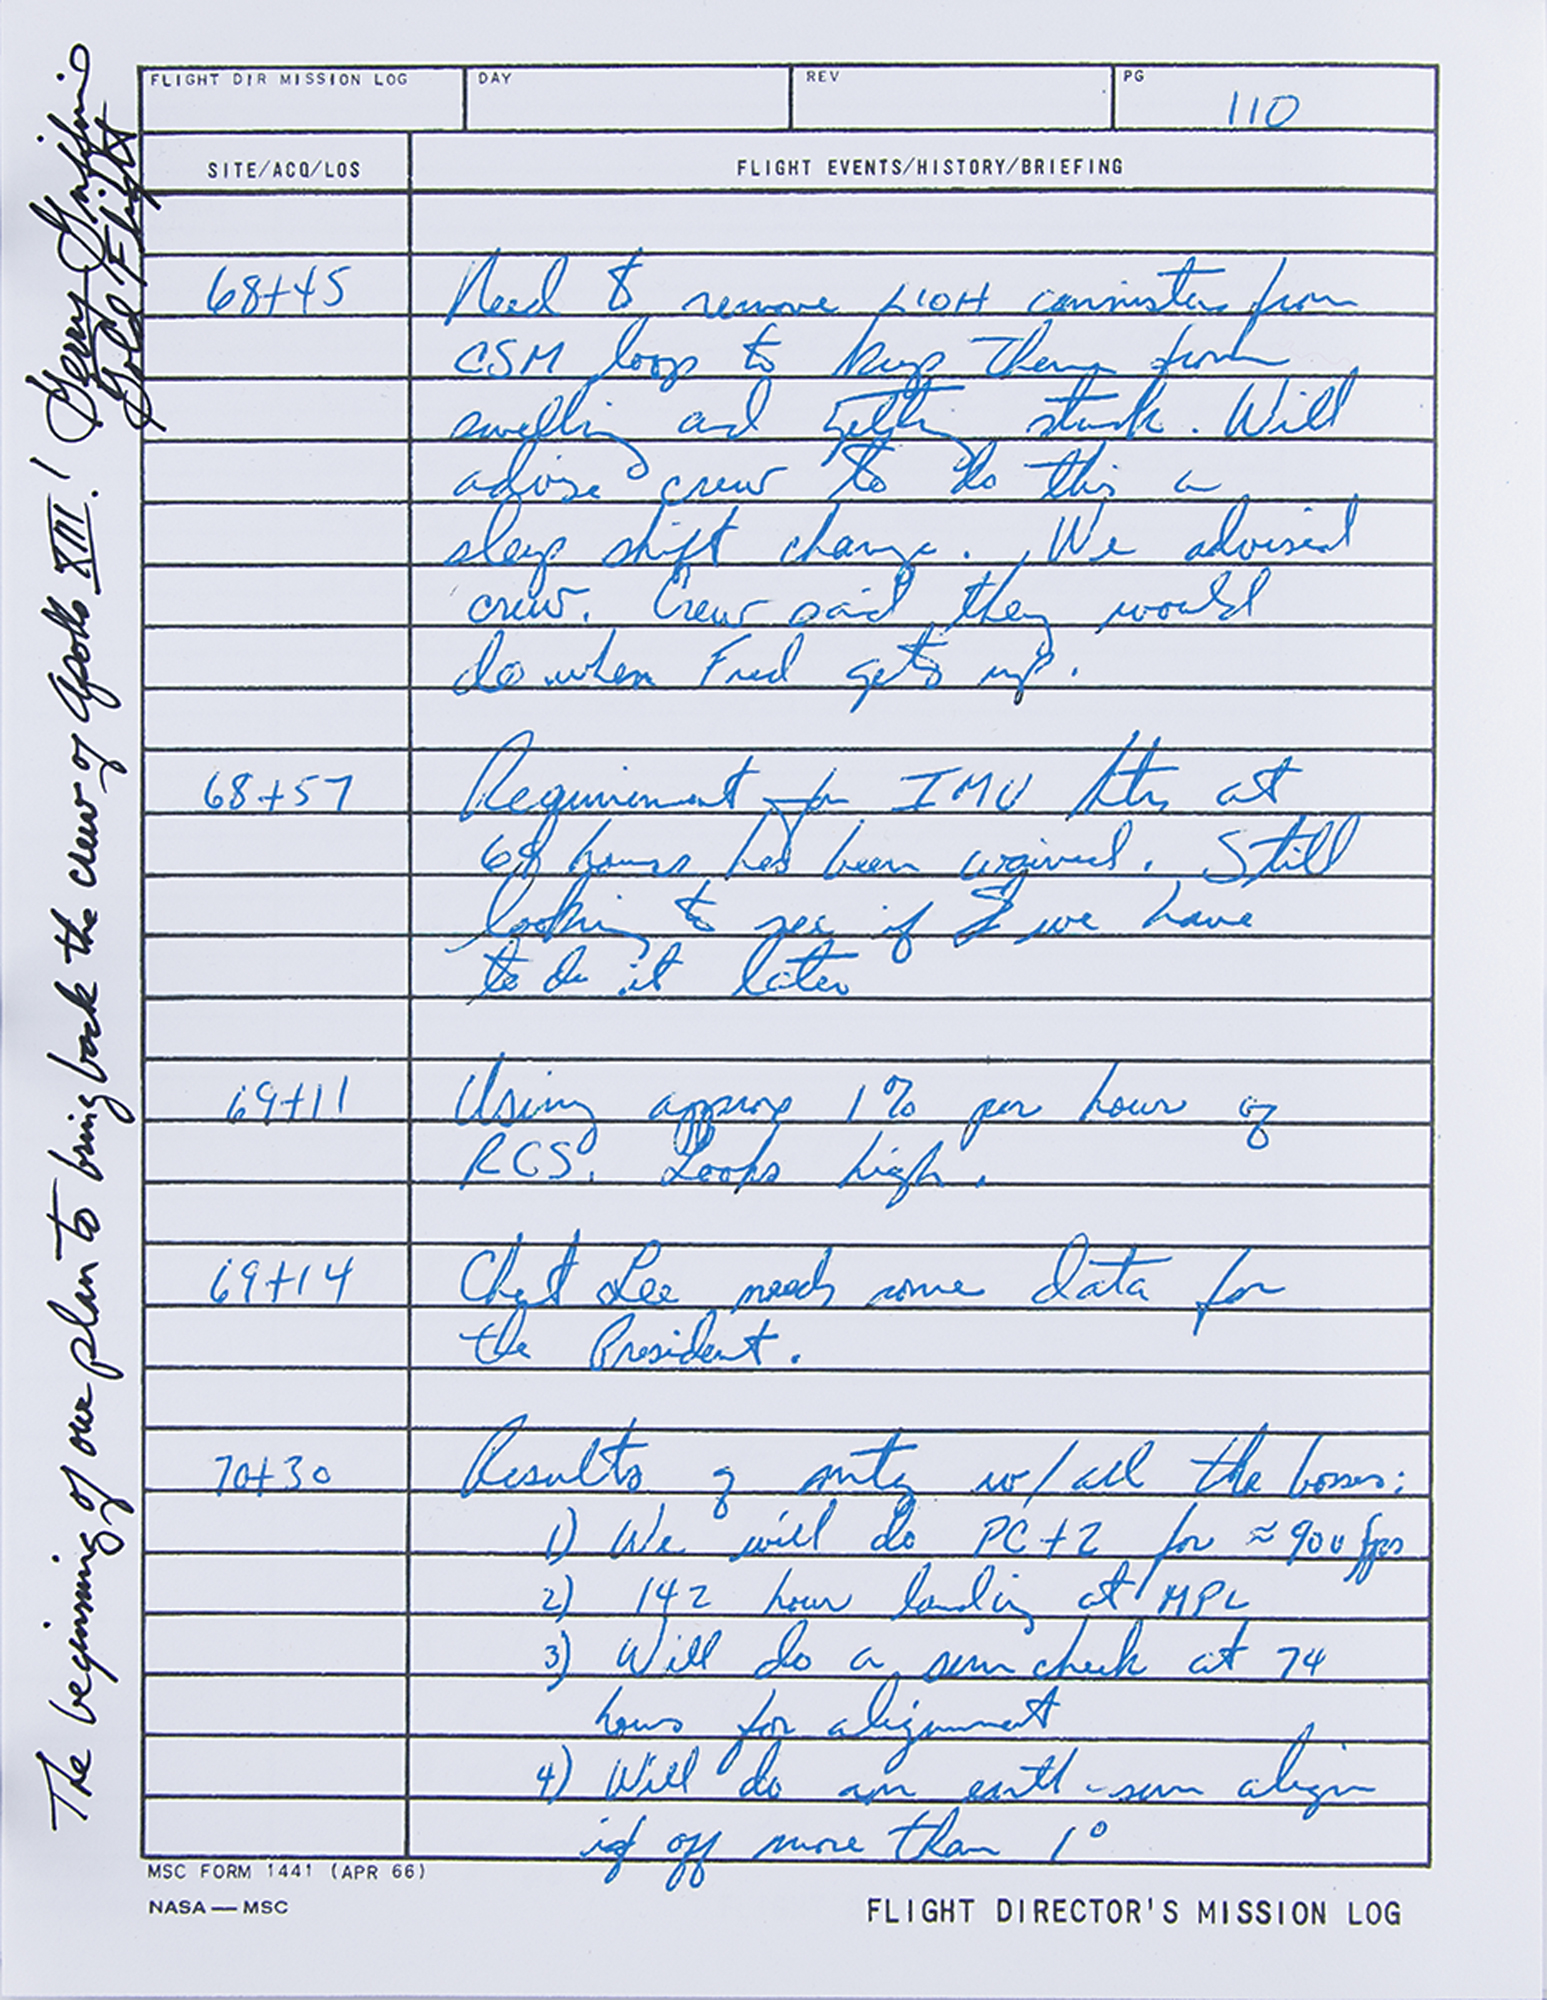 FLIGHT DIR MISSION LOG DAY REV PG
110
SITE/ACQ/LOS FLIGHT EVENTS/HISTORY/BRIEFING
68+45 Need to remove LIOH cannisters from
CSM loop to keep them from
swelling and getting stuck. Will
advise crew to do this a
sleep shift change. We advised
crew. Crew said they would
do when Fred gets up.
68+57 Requirement for IMU htrs at
68 hours has been waived. Still
looking to see if we have
to do it later
69+11 Using approx 1% per hour of
RCS. Looks high.
69+14 Chet Lee needs some data for
the President.
70+30 Results of mtg w/all the bosses:
1) We will do PC+2 for ≈ 900 fps
2) 142 hour landing at MPL
3) Will do a sun check at 74
hours for alignment
4) Will do an earth-sun align
if off more than 1°
MSC FORM 1441 (APR 66)
NASA — MSC
FLIGHT DIRECTOR'S MISSION LOG
The beginning of our plan to bring back the crew of Apollo XIII! Gerry Griffin
Gold Flight